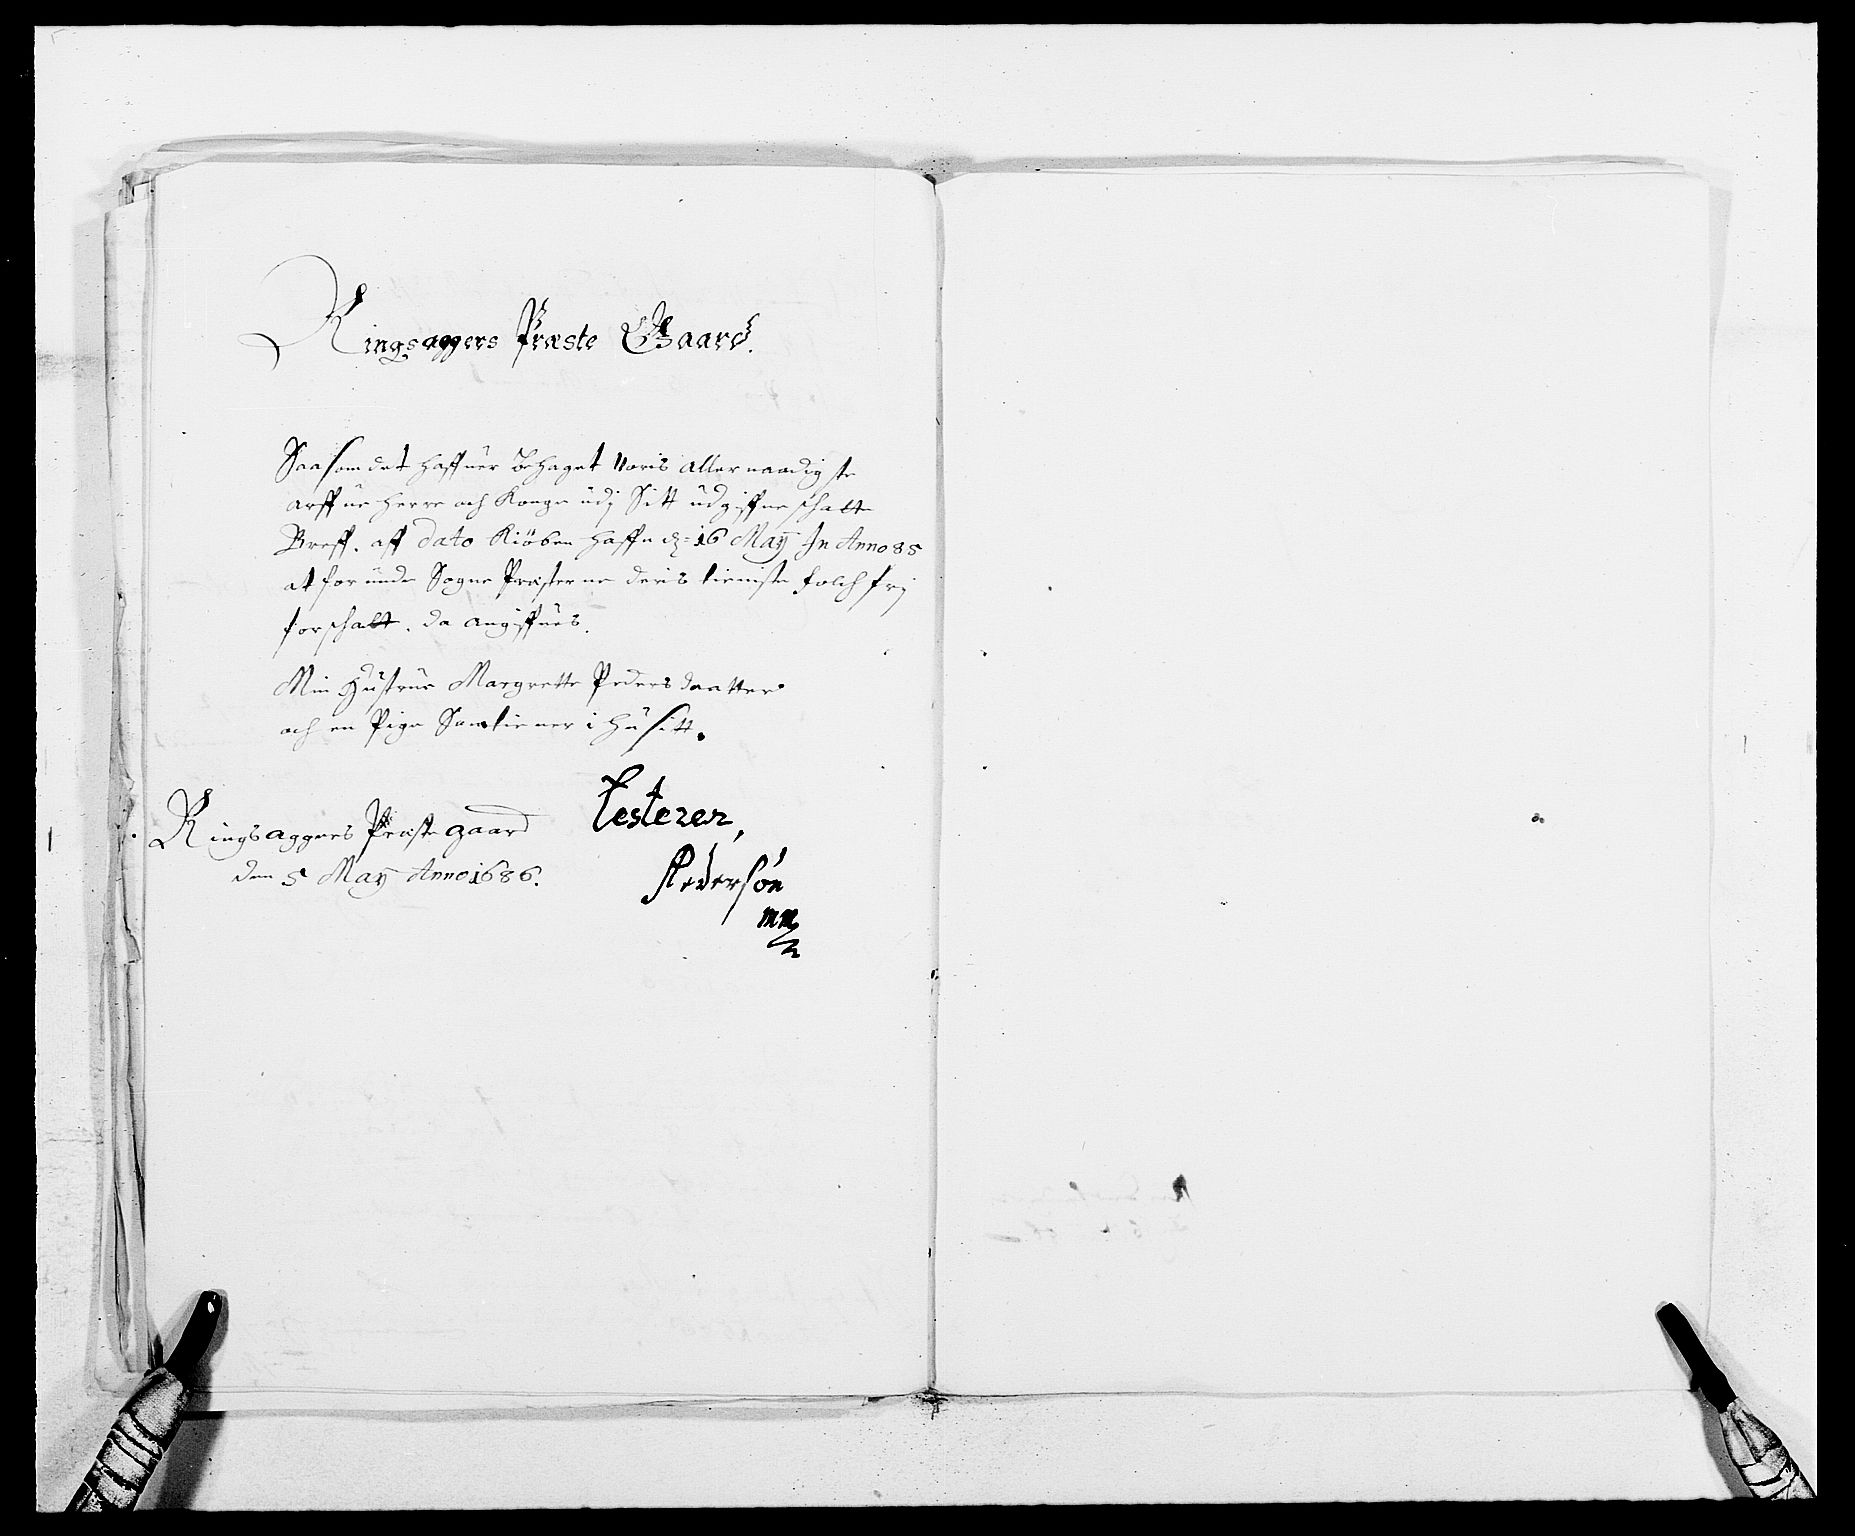 Ringsaggers Præste Gaard.
Saasom det haffuer behaget Voris Allernaadigste
arffue herre och Konge udj Sitt udgiffne schatte
Breff. aff dato Kiøbenhaffn dz: 16 Maÿ In Anno 85
at forunde Sogne Præsterne deris tieniste folch frj
for schatt. da angiffues.
Min Hustrue Margrette Peders daatter
och en Pige Sam tiener i husitt.
Ringsaggers Præste gaard
den 5 Maÿ Anno 1686.
Testerer,
Pedersøn
mm